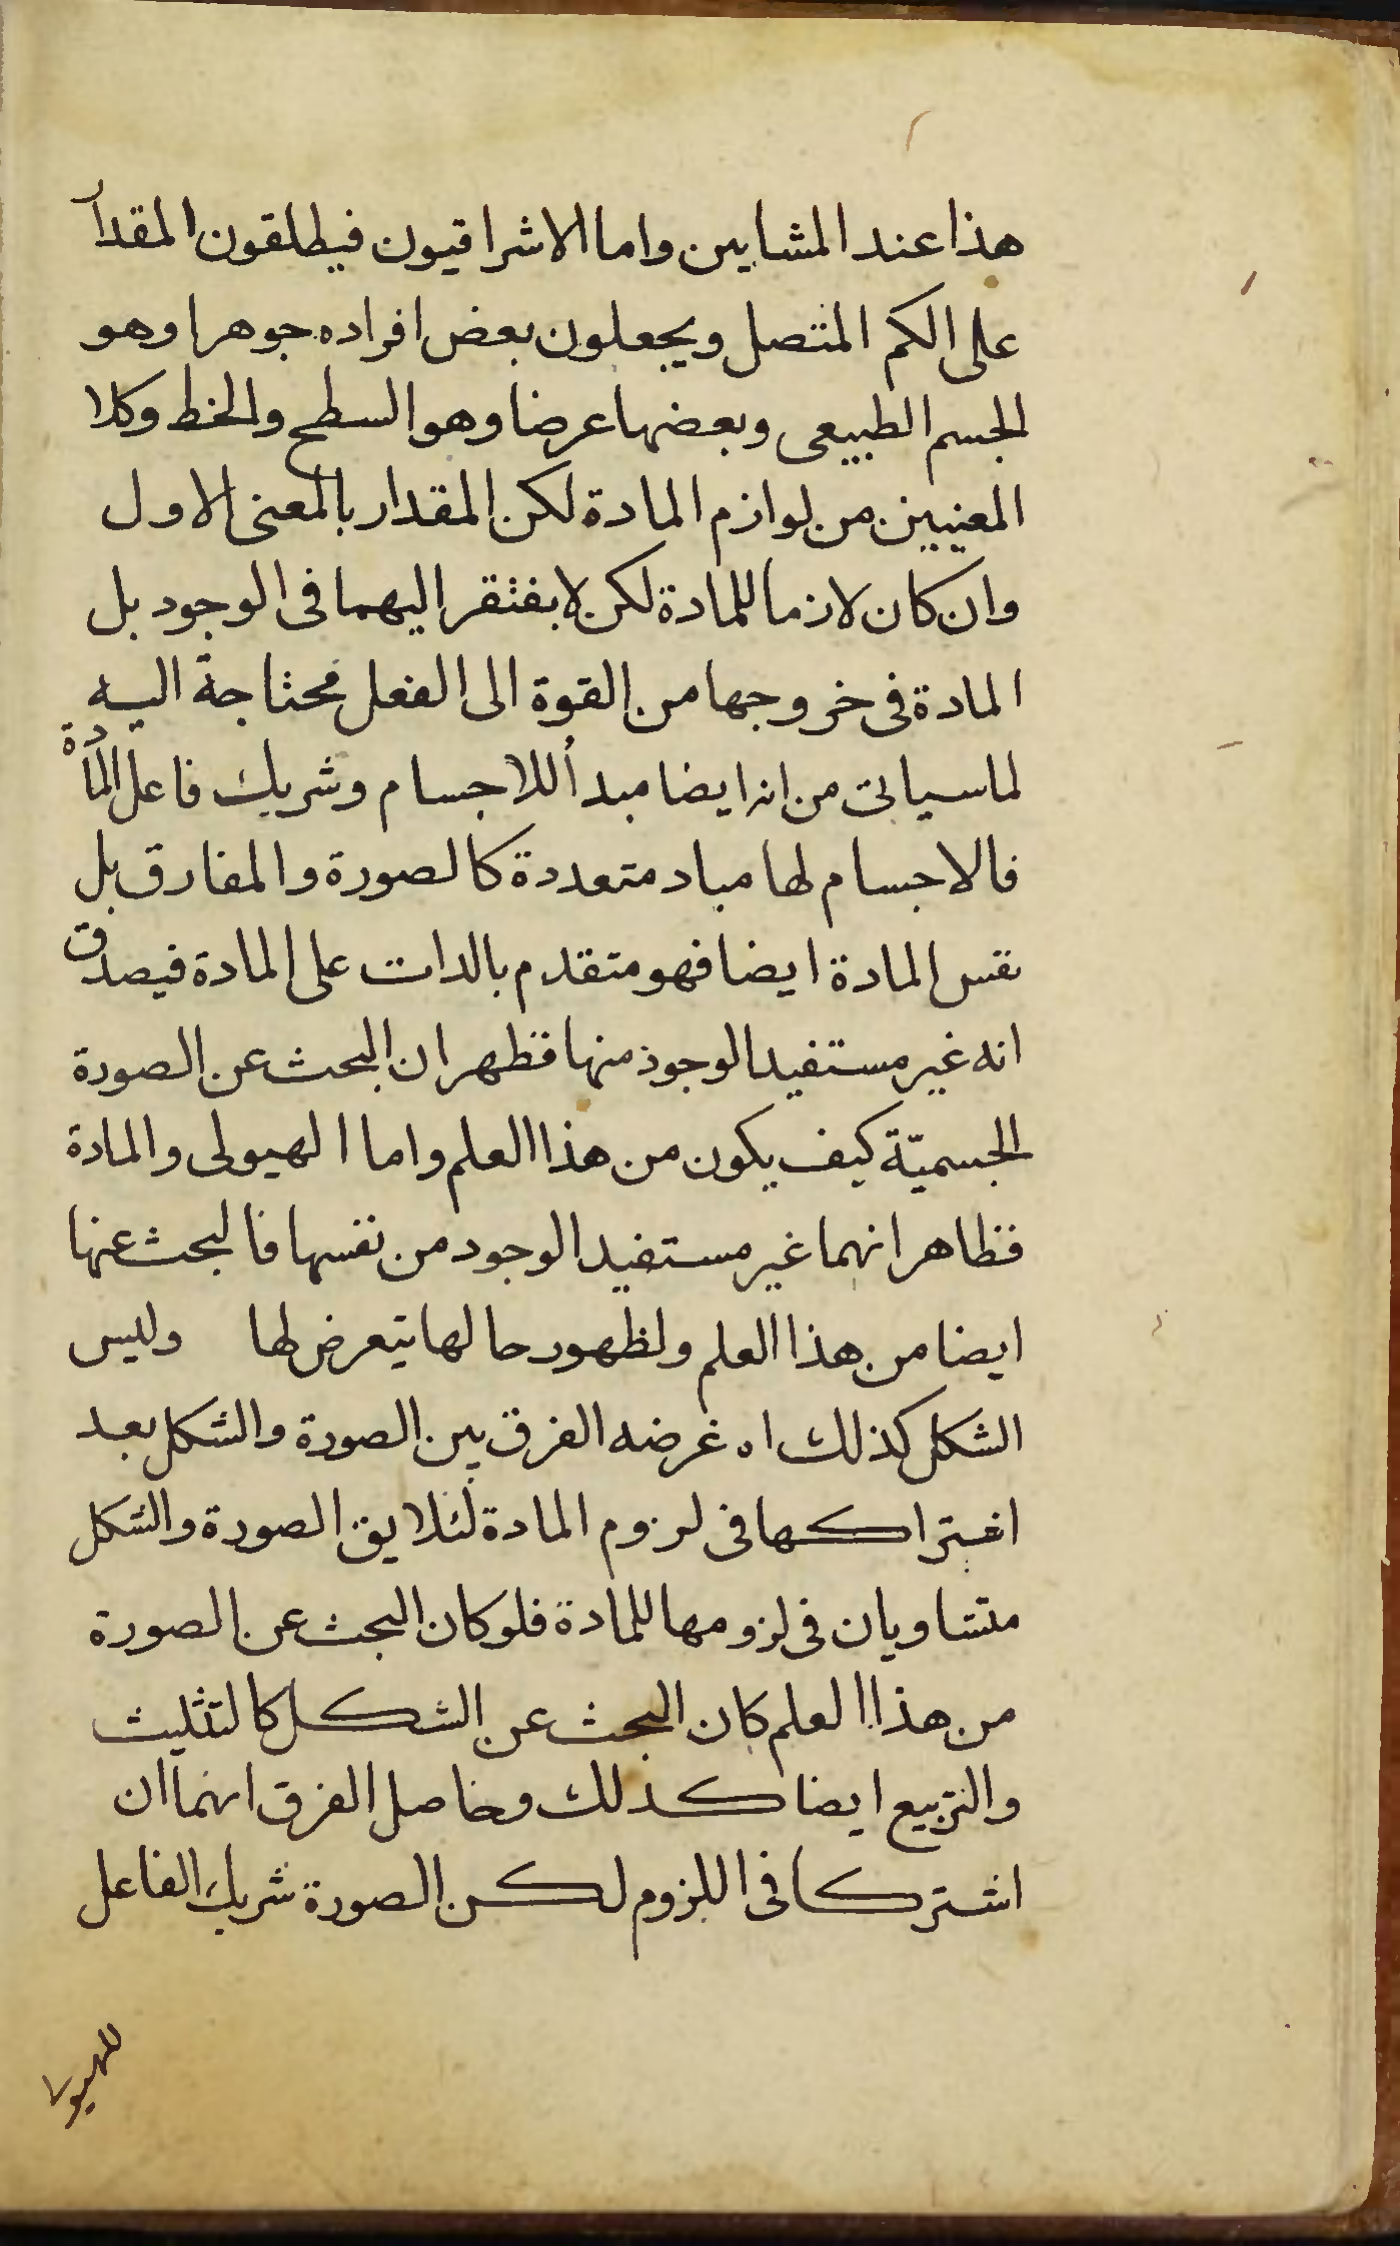 هذا عند المشايين واما الاشراقيون فيطلقون المقدار
على الكم المتصل ويجعلون بعض افراده جوهرا وهو
الجسم الطبيعى وبعضها عرضا وهو السطح والخط وكلا
المعنيين من لوازم المادة لكن المقدار بالمعنى الاول
وان كان لازما للمادة لكن لا يفتقر اليهما فى الوجود بل
المادة فى خروجها من القوة الى الفعل محتاجة اليه
لما سياتى من انه ايضا مبدأ للاجسام وشريك فاعل المادة
فالاجسام لها مباد متعددة كالصورة والمفارق بل
نفس المادة ايضا فهو متقدم بالدات على المادة فيصدق
انه غير مستفيد الوجود منها فظهر ان البحث عن الصورة
الجسميّة كيف يكون من هذا العلم واما الهيولى والمادة
فظاهر انهما غير مستفيد الوجود من نفسها فالبحث عنها
ايضا من هذا العلم ولظهور حالها يتعرض لها وليس
الشكل كذلك اه غرضه الفرق بين الصورة والشكل بعد
اشتراكها فى لزوم المادة لئلا يق الصورة والشكل
متساويان فى لزومها للمادة فلو كان البحث عن الصورة
من هذا العلم كان البحث عن الشكل كالتثليث
والتربيع ايضا كذلك وحاصل الفرق انهما ان
اشتركا فى اللزوم لكن الصورة شريك الفاعل
للهيولى